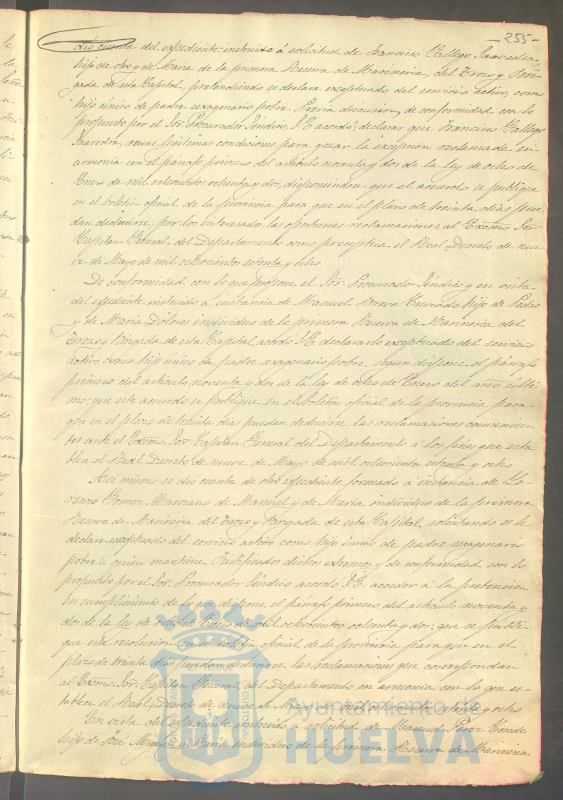 255
dió cuenta del expediente instruido á solicitud de Francisco Gallego Saavedra,
hijo de otro y de María de la primera Reserva de Marinería, del Trozo y Bri-
gada de esta Capital, pretendiendo se declare exceptuado del servicio activo, como
hijo único de padre sexagenario pobre. Previa discusion, de conformidad con lo
propuesto por el Sor. Procurador Síndico, S.E. acordó: declarar que Francisco Gallego
Saavedra, reune legítimas condiciones para gozar la excepcion reclamada en
armonia con el párrafo primero del artículo noventa y dos de la ley de ocho de
Enero de mil ochocientos ochenta y dos, disponiendo que el acuerdo se publique
en el boletin oficial de la provincia para que en el plazo de treinta dias pue-
dan deducirse por los interesados las oportunas reclamaciones al Excmo. Sor.
Capitan General del Departamento como preceptua el Real Decreto de nue-
ve de Mayo de mil ochocientos setenta y ocho.
De conformidad con lo que propone el Sor. Procurador Síndico y en vista
del expediente instruido á instancia de Manuel hijo de Pedro
y de María Dolores individuo de la primera Reserva de Marinería del
Trozo y Brigada de esta Capital, acordó S.E. declararlo exceptuado del servicio
activo como hijo único de padre sexagenario pobre, segun dispone el párrafo
primero del artículo noventa y dos de la ley de ocho de Enero del año últi-
mo; que este acuerdo se publique en el boletin oficial de la provincia para
que en el plazo de treinta dias puedan deducirse las reclamaciones convenien-
tes ante el Excmo. Sor. Capitan General del Departamento á los fines que esta-
blece el Real Decreto de nueve de Mayo de mil ochocientos setenta y ocho.
Así mismo se dió cuenta de otro expediente formado á instancia de Lo-
renzo Gomez de Manuel y de María individuo de la primera
Reserva de Marinería del Trozo y Brigada de esta Capital, solicitando se le
declare exceptuado del servicio activo como hijo único de padre sexagenario
pobre á quien mantiene. Justificados dichos extremos y de conformidad con lo
propuesto por el Sor. Procurador Síndico acordó S.E. acceder á la pretension
en cumplimiento de lo que dispone el párrafo primero del artículo noventa y
dos de la ley de ocho de Enero de mil ochocientos ochenta y dos; que se publi-
que esta resolucion en el boletin oficial de la provincia para que en el
plazo de treinta dias puedan deducirse las reclamaciones que correspondan
al Excmo. Sor. Capitan General del Departamento en armonia con lo que es-
tablece el Real Decreto de nueve de Mayo de mil ochocientos setenta y ocho.
En vista del expediente instruido á solicitud de Manuel Perez Conde
hijo de José y de María individuo de la primera Reserva de Marinería
Ayuntamiento de
HUELVA